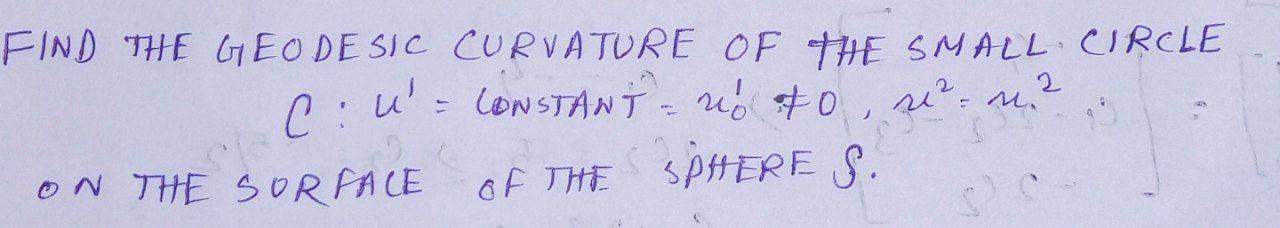 FIND THE GEODESIC CURVATURE OF THE SMALL CIRCLE
C : u¹ = CONSTANT = u¹₀ ≠ 0 , u² = u²
ON THE SURFACE OF THE SPHERE S.